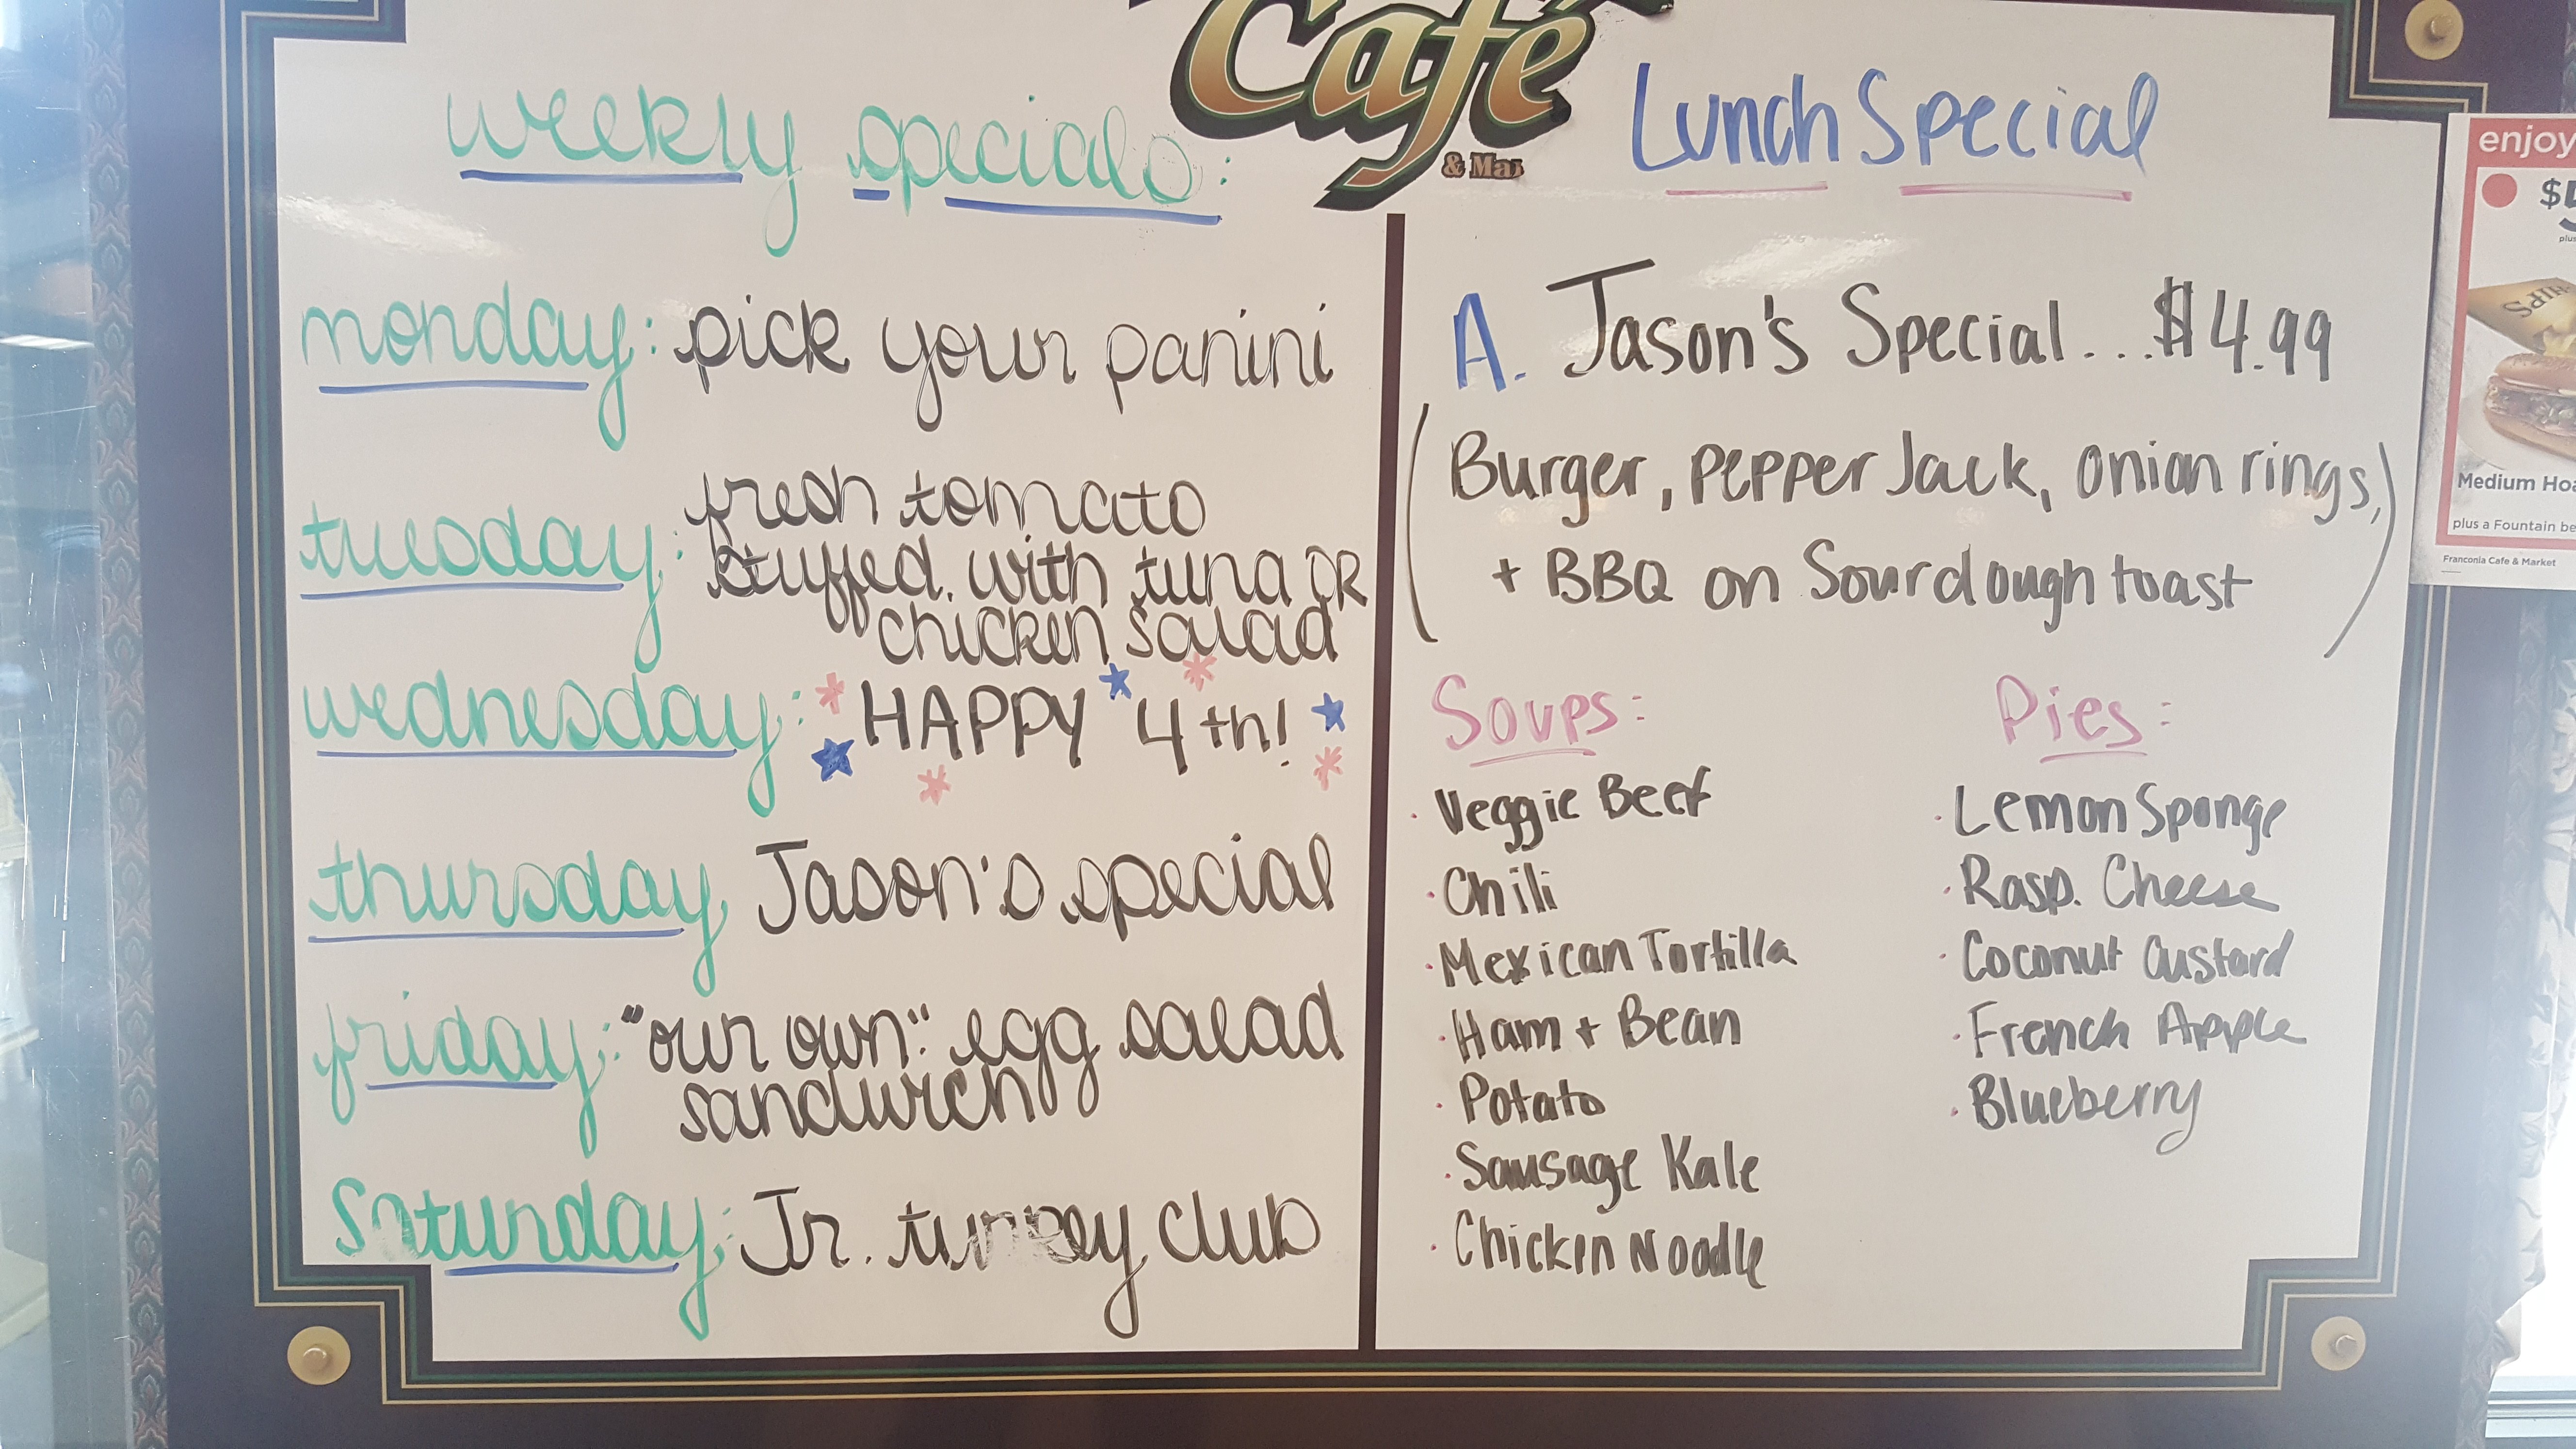 Café
& Mar
weekly specials:
monday: pick your panini
tuesday: fresh tomato
stuffed with tuna OR
chicken salad
wednesday: HAPPY 4th!
thursday: Jason's special
friday: "our own" egg salad
sandwich
Saturday: Jr. turkey club
Lunch Special
A. Jason's Special...$4.99
(Burger, Pepper Jack, Onion rings,)
+ BBQ on Sourdough toast
Soups:
· Veggie Beef
· Chili
· Mexican Tortilla
· Ham + Bean
· Potato
· Sausage Kale
· Chicken Noodle
Pies:
· Lemon Sponge
· Rasp. Cheese
· Coconut Custard
· French Apple
· Blueberry
enjoy
plus
CHIPS
Medium Hoa
plus a Fountain be
Franconia Cafe & Market